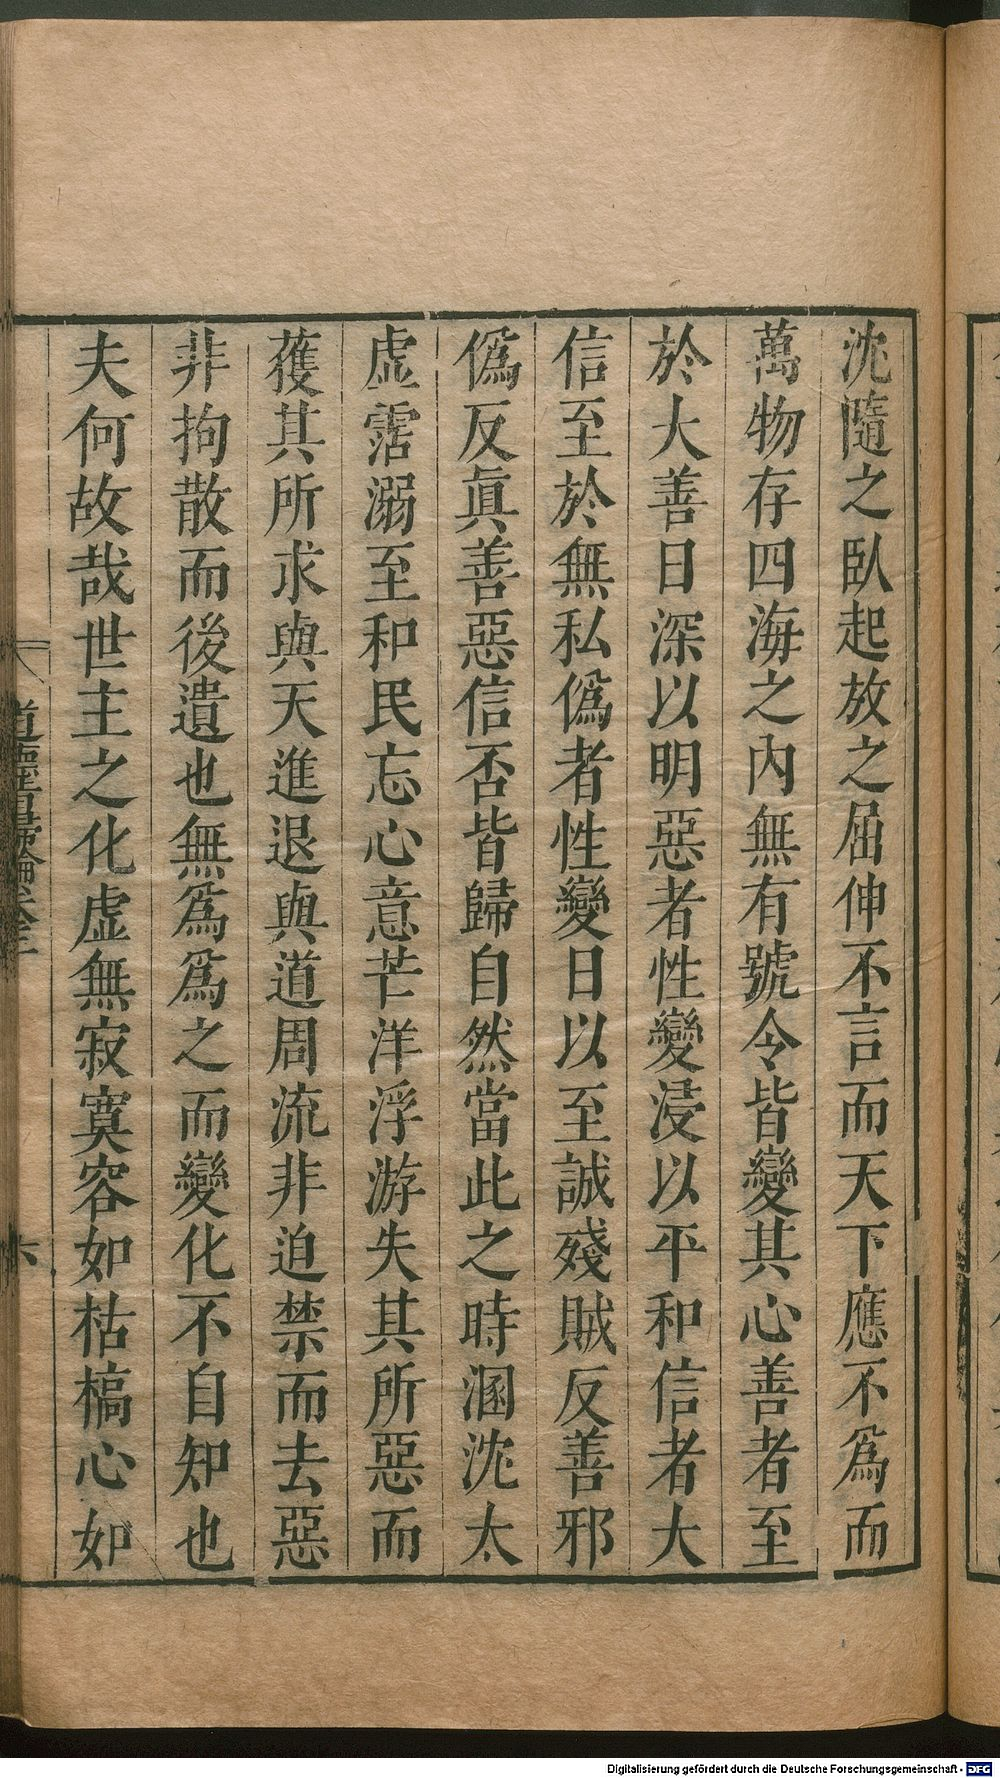 沈隨之臥起放之屈伸不言而天下應不爲而
萬物存四海之內無有號令皆變其心善者至
於大善日深以明惡者性變浸以平和信者大
信至於無私僞者性變日以至誠殘賊反善邪
僞反眞善惡信否皆歸自然當此之時溷沈太
虛霑溺至和民忘心意芒洋浮游失其所惡而
獲其所求與天進退與道周流非迫禁而去惡
非拘散而後遺也無爲爲之而變化不自知也
夫何故哉世主之化虛無寂寞容如枯槁心如
道德指歸論卷三
六
Digitalisierung gefördert durch die Deutsche Forschungsgemeinschaft - DFG